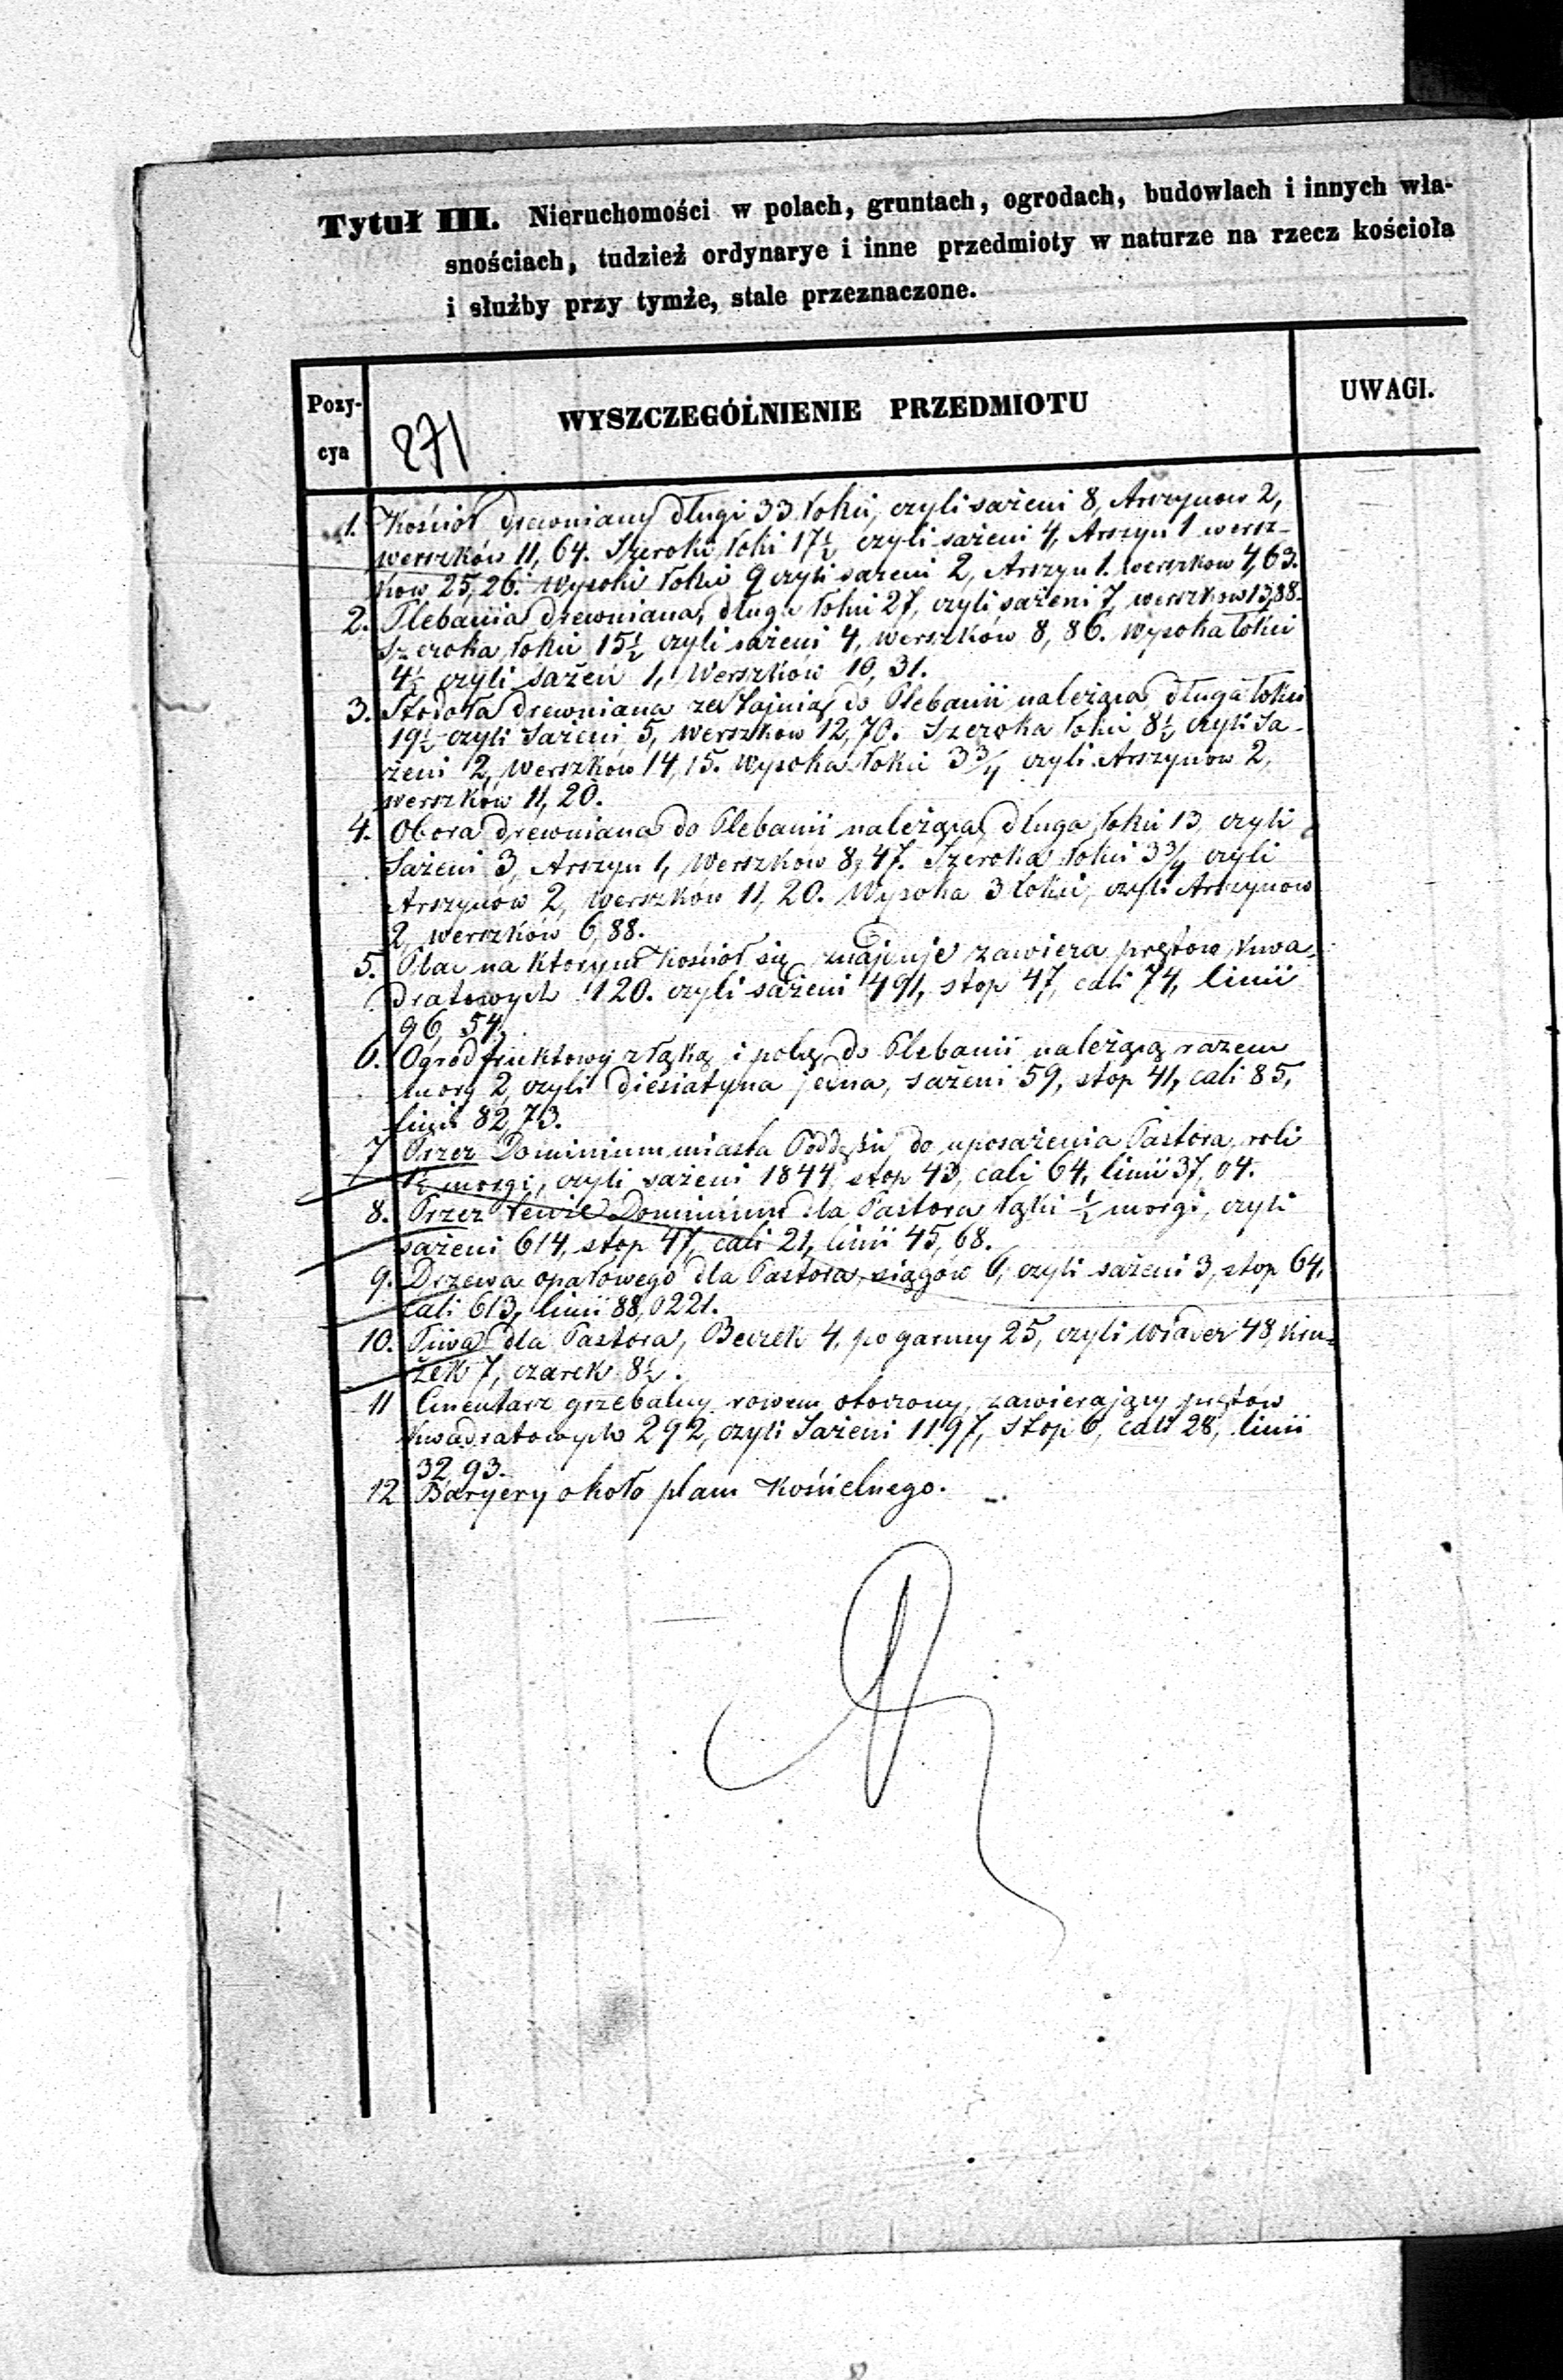 Tytuł III. Nieruchomości w polach, gruntach, ogrodach, budowlach i innych wła-
snościach, tudzież ordynarye i inne przedmioty w naturze na rzecz kościoła
i służby przy tymże, stale przeznaczone.
Pozy-
cya
271
WYSZCZEGÓLNIENIE PRZEDMIOTU
UWAGI.
1. Kościoł drewniany długi 33 łokci, czyli sażeni 8, Arszynow 2,
werszków 11, 64. Szeroki łokci 17½ czyli sażeni 4, Arszyn 1 wersz-
kow 25,26. Wysoki łokci 9 czyli sażeni 2, Arszyn 1. werszkow 4,63.
2. Plebania drewniana, długa łokci 27, czyli sażeni 7, werszkow 13,88.
Szeroka łokci 15½ czyli sażeni 4, werszków 8, 86. Wysoka łokci
4½ czyli sażeń 1, Werszków 10, 31.
3. Stodoła drewniana ze stajnią do Plebanii należąca długa łokci
19½ czyli Sażeni 5, werszkow 12,70. Szeroka łokci 8½ czyli Sa-
żeni 2, werszków 14, 15. Wysoka łokci 3¾ czyli Arszynow 2,
werszków 11, 20.
4. Obora drewniana do Plebanii należąca, długa łokci 13, czyli
Sażeni 3, Arszyn 1, Werszków 8, 47. Szeroka łokci 3¾ czyli
Arszynów 2, werszkow 11, 20. Wysoka 3 łokci, czyli Arszynow
2, werszków 6, 88.
5. Plac na ktorym kościoł się znajduje zawiera prętow kwa-
dratowych 120. czyli sażeni 491, stop 47, cali 74, linii
96, 54.
6. Ogród fruktowy z łąką i polą do Plebanii należącą razem
morg 2, czyli diesiatyna jedna, sażeni 59, stop 41, cali 85,
linii 82,73.
7 Przez Dominium miasta Poddębic do uposażenia Pastora, roli
1½ morgi, czyli sażeni 1844, stop 43, cali 64, linii 37, 04.
8. Przez tewże Dominium dla Pastora łąki ½ morgi, czyli
sażeni 614, stop 47, cali 21, linii 45, 68.
9. Drzewa opałowego dla Pastora, siągów 6, czyli sażeni 3, stop 64,
cali 613, linii 88,0221.
10. Piwa dla Pastora, Beczek 4, po garncy 25, czyli Wiader 48, kru-
żek 7, czarek 8½.
11 Cmentarz grzebalny rowem otoczony, zawierający prętów
kwadratowych 292, czyli Sażeni 1197, Stop 6, cali 28, linii
32, 93.
12 Baryery około placu Kościelnego.